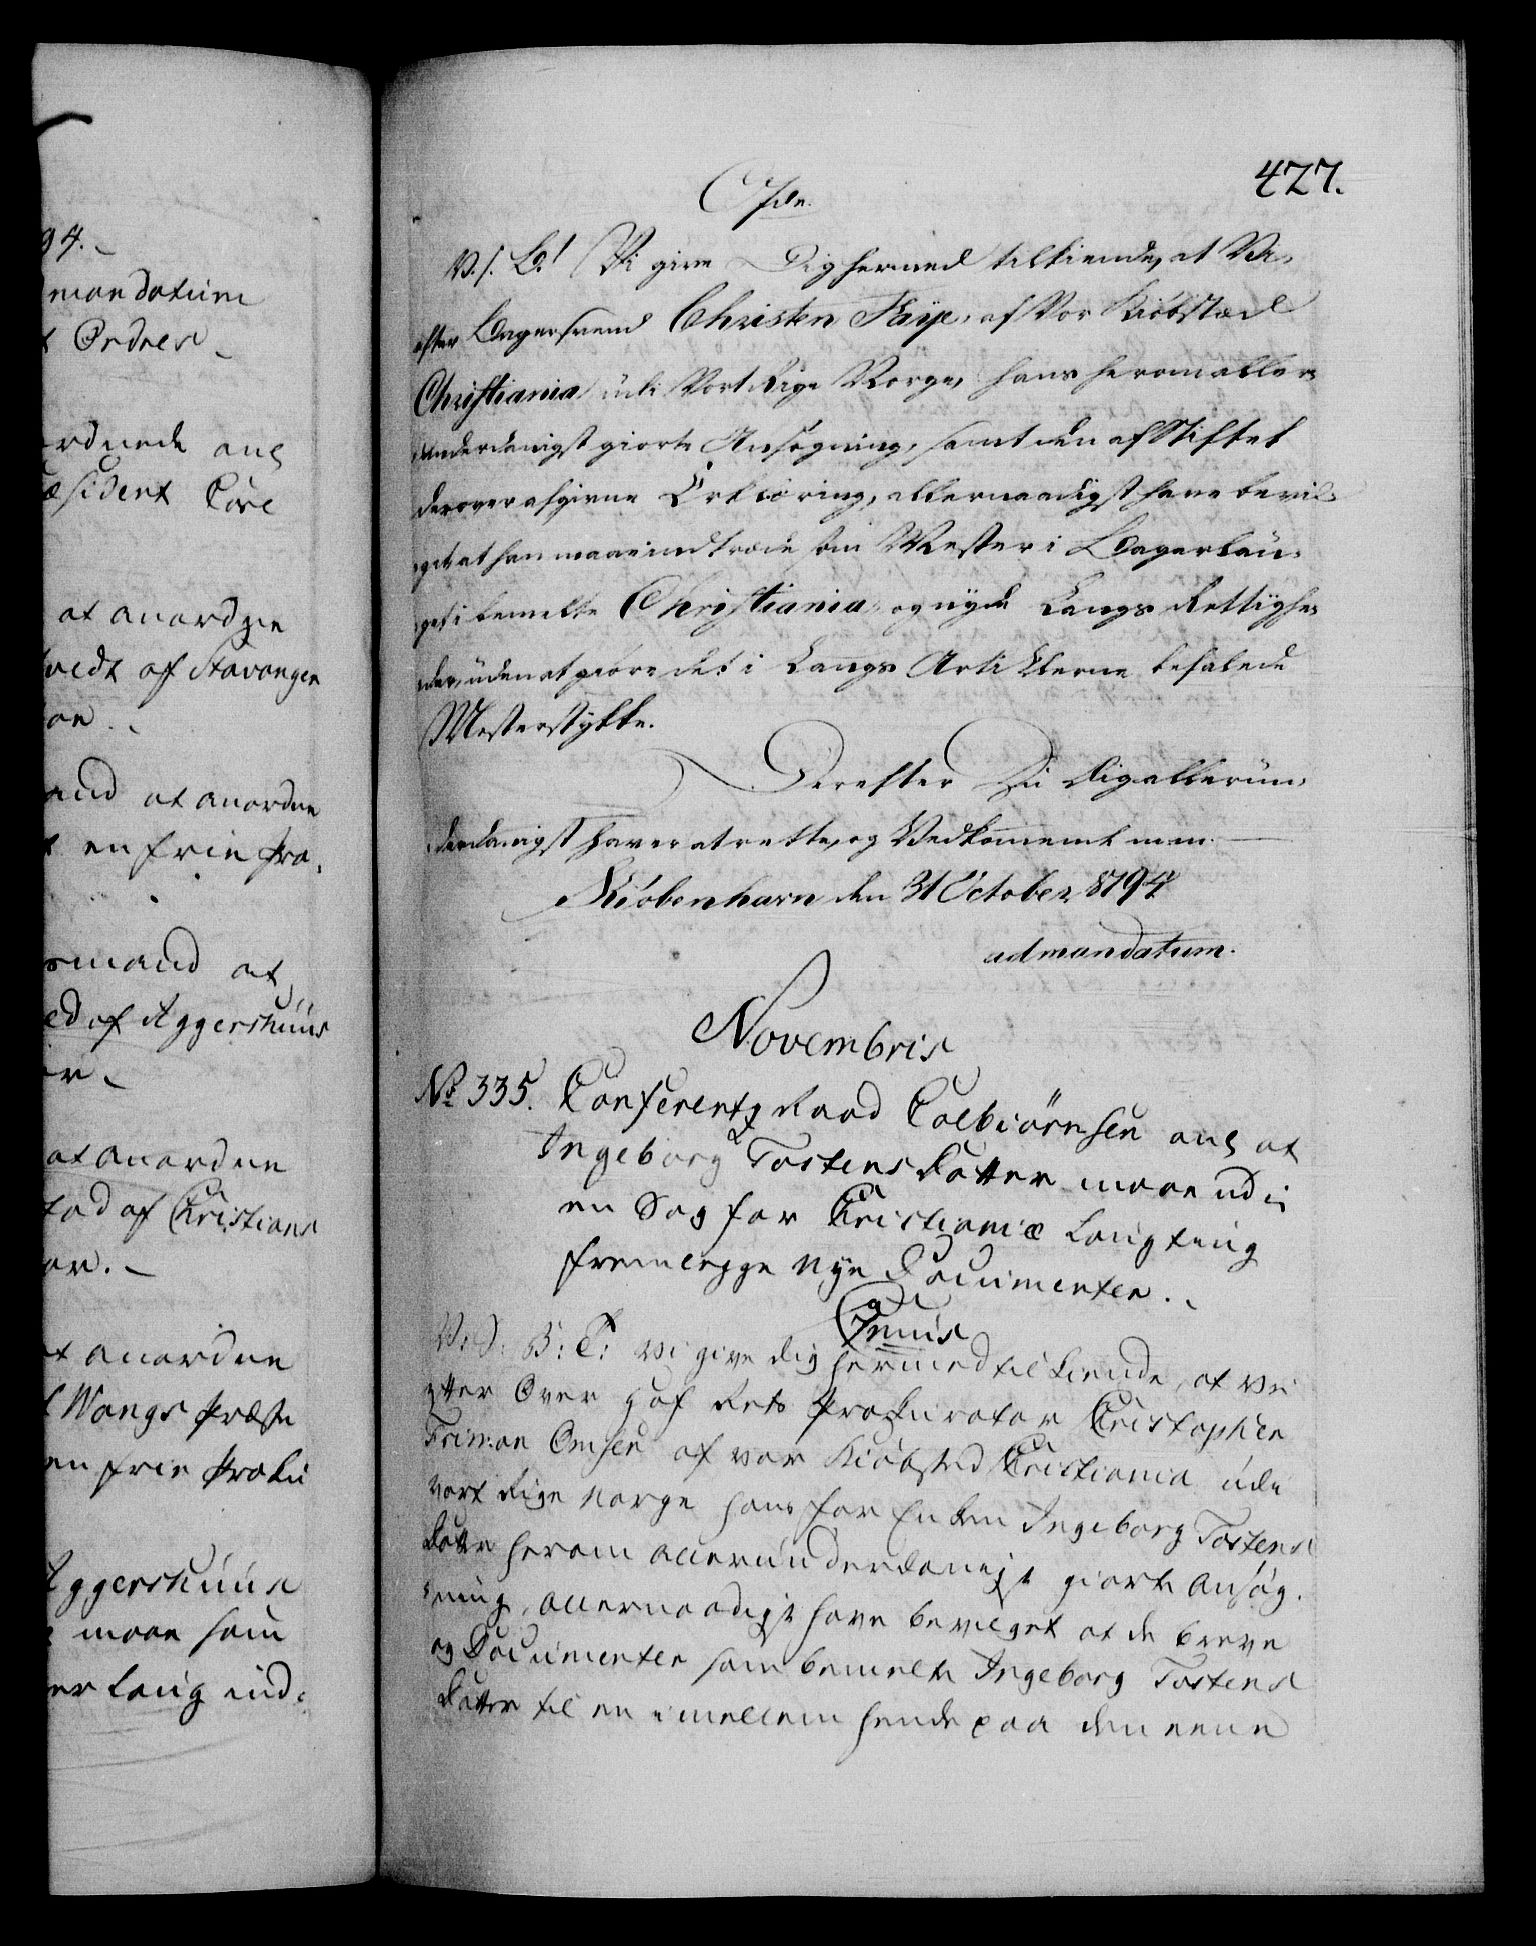 94.
mandatum
Ordres
ordnede ang
præsident Cöre
at anordne
tvedt af Stavanger
and at anordne
en frie pro,
ormand at
ed af Aggershuus
at anordne
tad af Christians
at anordne
Wangs præste
en frie Prokú
Aggershúús
maae som
er laug ind,
427.
C 7de.
V. s. G.! Vi give Dig hermed tilkiende, at Vi,
efter Bagersvend Christen Faÿe, af Vor Kiöbstæd
Christiania údi Vort Rige Norge, hans herom aller,
underdanigst giorte Ansøgning, samt den af Stiftet
derover afgivne Erklæring, allernaadigst have bevil,
get at han maae indtræde som Mester i Bagerlau,
get i bemelte Christiania, og nyde Laugs Rettighe,
der, úden at giøre det i Laugs Artiklerne befalede
Mesterstykke.
Derefter Du Dig allerún,
derdanigst haver at rette, og Vedkommende
Kiöbenhavn den 31 October 1794
ad mandatum.
Novembris
No 335. Conferentz Raad Colbiörnsen ang at
Ingeborg Tostens Datter maae udi
en Sag for Christianiæ Laugting
fremlegge nye Documenter.
7mús
V: S: B: T: vi give dig hermed til kiende, at vi
efter Over Hof Rets Prokurator Christopher
Friman Omsen af vor Kiöbsted Christiania údi
vort Rige Norge hans for Enken Ingeborg Tostens
Datter herom allerúnderdanigst giorte Ansøg,
ning, allernaadigst have bevilget at de breve
og Documenter som bemelte Ingeborg Tostens
Datter til en imellem hende paa den eene